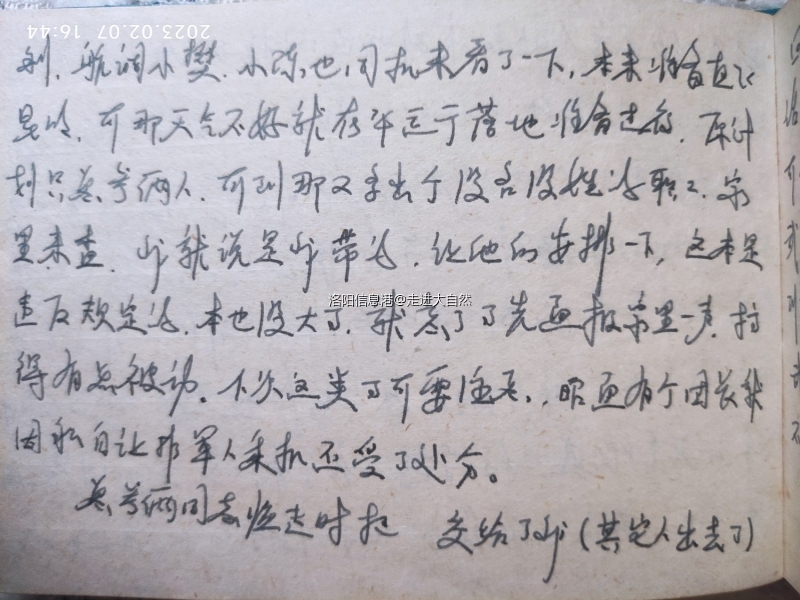 2023.02.07 16:44
利，航调小樊、小陈也同机来看了一下，本来准备直飞
昆明，可那天气不好就在 落地准备过夜，原计
划只 两人，可到那又多出个没名没姓的职工，家
里来查，我就说是我带的，让他们安排一下，这本是
违反规定的，本也没大事，就忘了事先通报家里一声，搞
得有点被动。下次这类事可要注意，昭通有个团长就
因私自让非军人乘机还受了处分。
两同志临走时把 交给了我（其它人出去了）
洛阳信息港@走进大自然